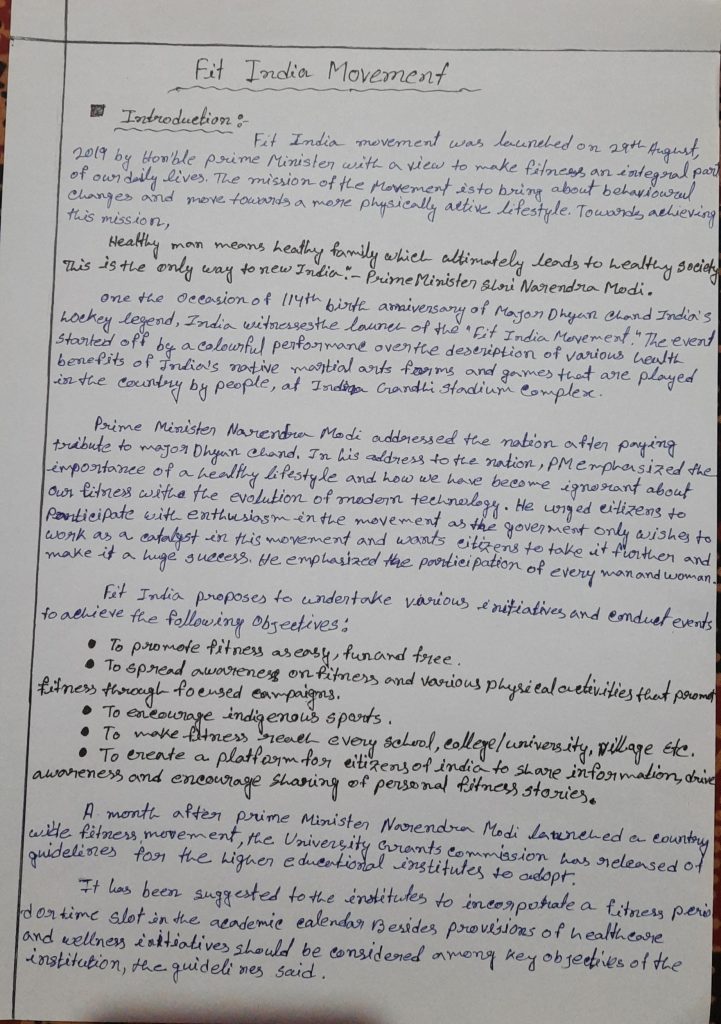 Fit India Movement
Introduction :-
Fit India movement was launched on 29th August,
2019 by Hon'ble prime Minister with a view to make fitness an integral part
of our daily lives. The mission of the Movement is to bring about behavioural
changes and move towards a more physically active lifestyle. Towards achieving
this mission,
Healthy man means heathy family which altimately leads to healthy society
This is the only way to new India :- Prime Minister Shri Narendra Modi.
One the Occasion of 114th birth anniversary of Major Dhyan Chand India's
hockey legend, India witnesses the launch of the "Fit India Movement." The event
started off by a colourful performane over the description of various health
benefits of India's native martial arts forms and games that are played
in the country by people, at Indira Gandhi Stadium Complex.
Prime Minister Narendra Modi addressed the nation after paying
tribute to major Dhyan Chand. In his address to the nation, PM emphasized the
importance of a healthy lifestyle and how we have become ignorant about
our fitness with the evolution of modern technology. He urged citizens to
Participate with enthusiasm in the movement as the goverment only wishes to
work as a catalyst in this movement and wants citizens to take it further and
make it a huge success. He emphasized the participation of every man and woman.
Fit India proposes to undertake various initiatives and conduct events
to achieve the following objectives :
• To promote fitness as easy, fun and free.
• To spread awareness on fitness and various physical activities that promot
fitness through focused campaigns.
• To encourage indigenous sports.
• To make fitness reach every school, college/university, village etc.
• To create a platform for citizens of india to share information, drive
awareness and encourage sharing of personal fitness stories.
A month after prime Minister Narendra Modi launched a country
wide fitness movement, the University Grants Commission has released of
guidelines for the higher educational institutes to adopt.
It has been suggested to the institutes to incorporate a fitness perio
d or time slot in the academic calendar Besides provisions of healthcare
and wellness initiatives should be considered among key objectives of the
institution, the guidelines said.